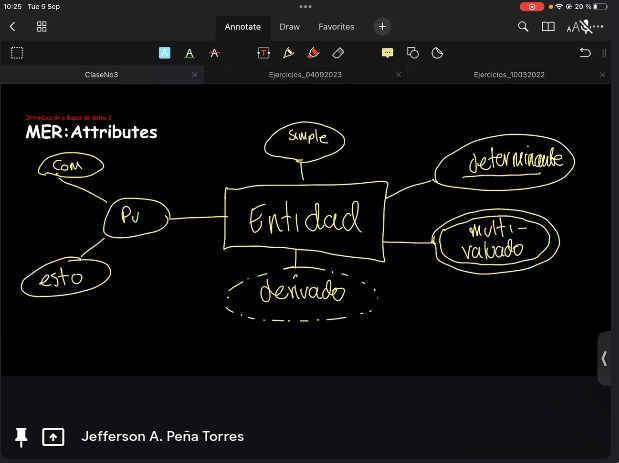 10:25 Tue 5 Sep
20 %
Annotate Draw Favorites
ClaseNo3 Ejercicios_04092023 Ejercicios_10032022
Introducción a Bases de datos I
MER:Attributes
simple
com
determinante
Pu
Entidad
multi-
valuado
esto
derivado
Jefferson A. Peña Torres